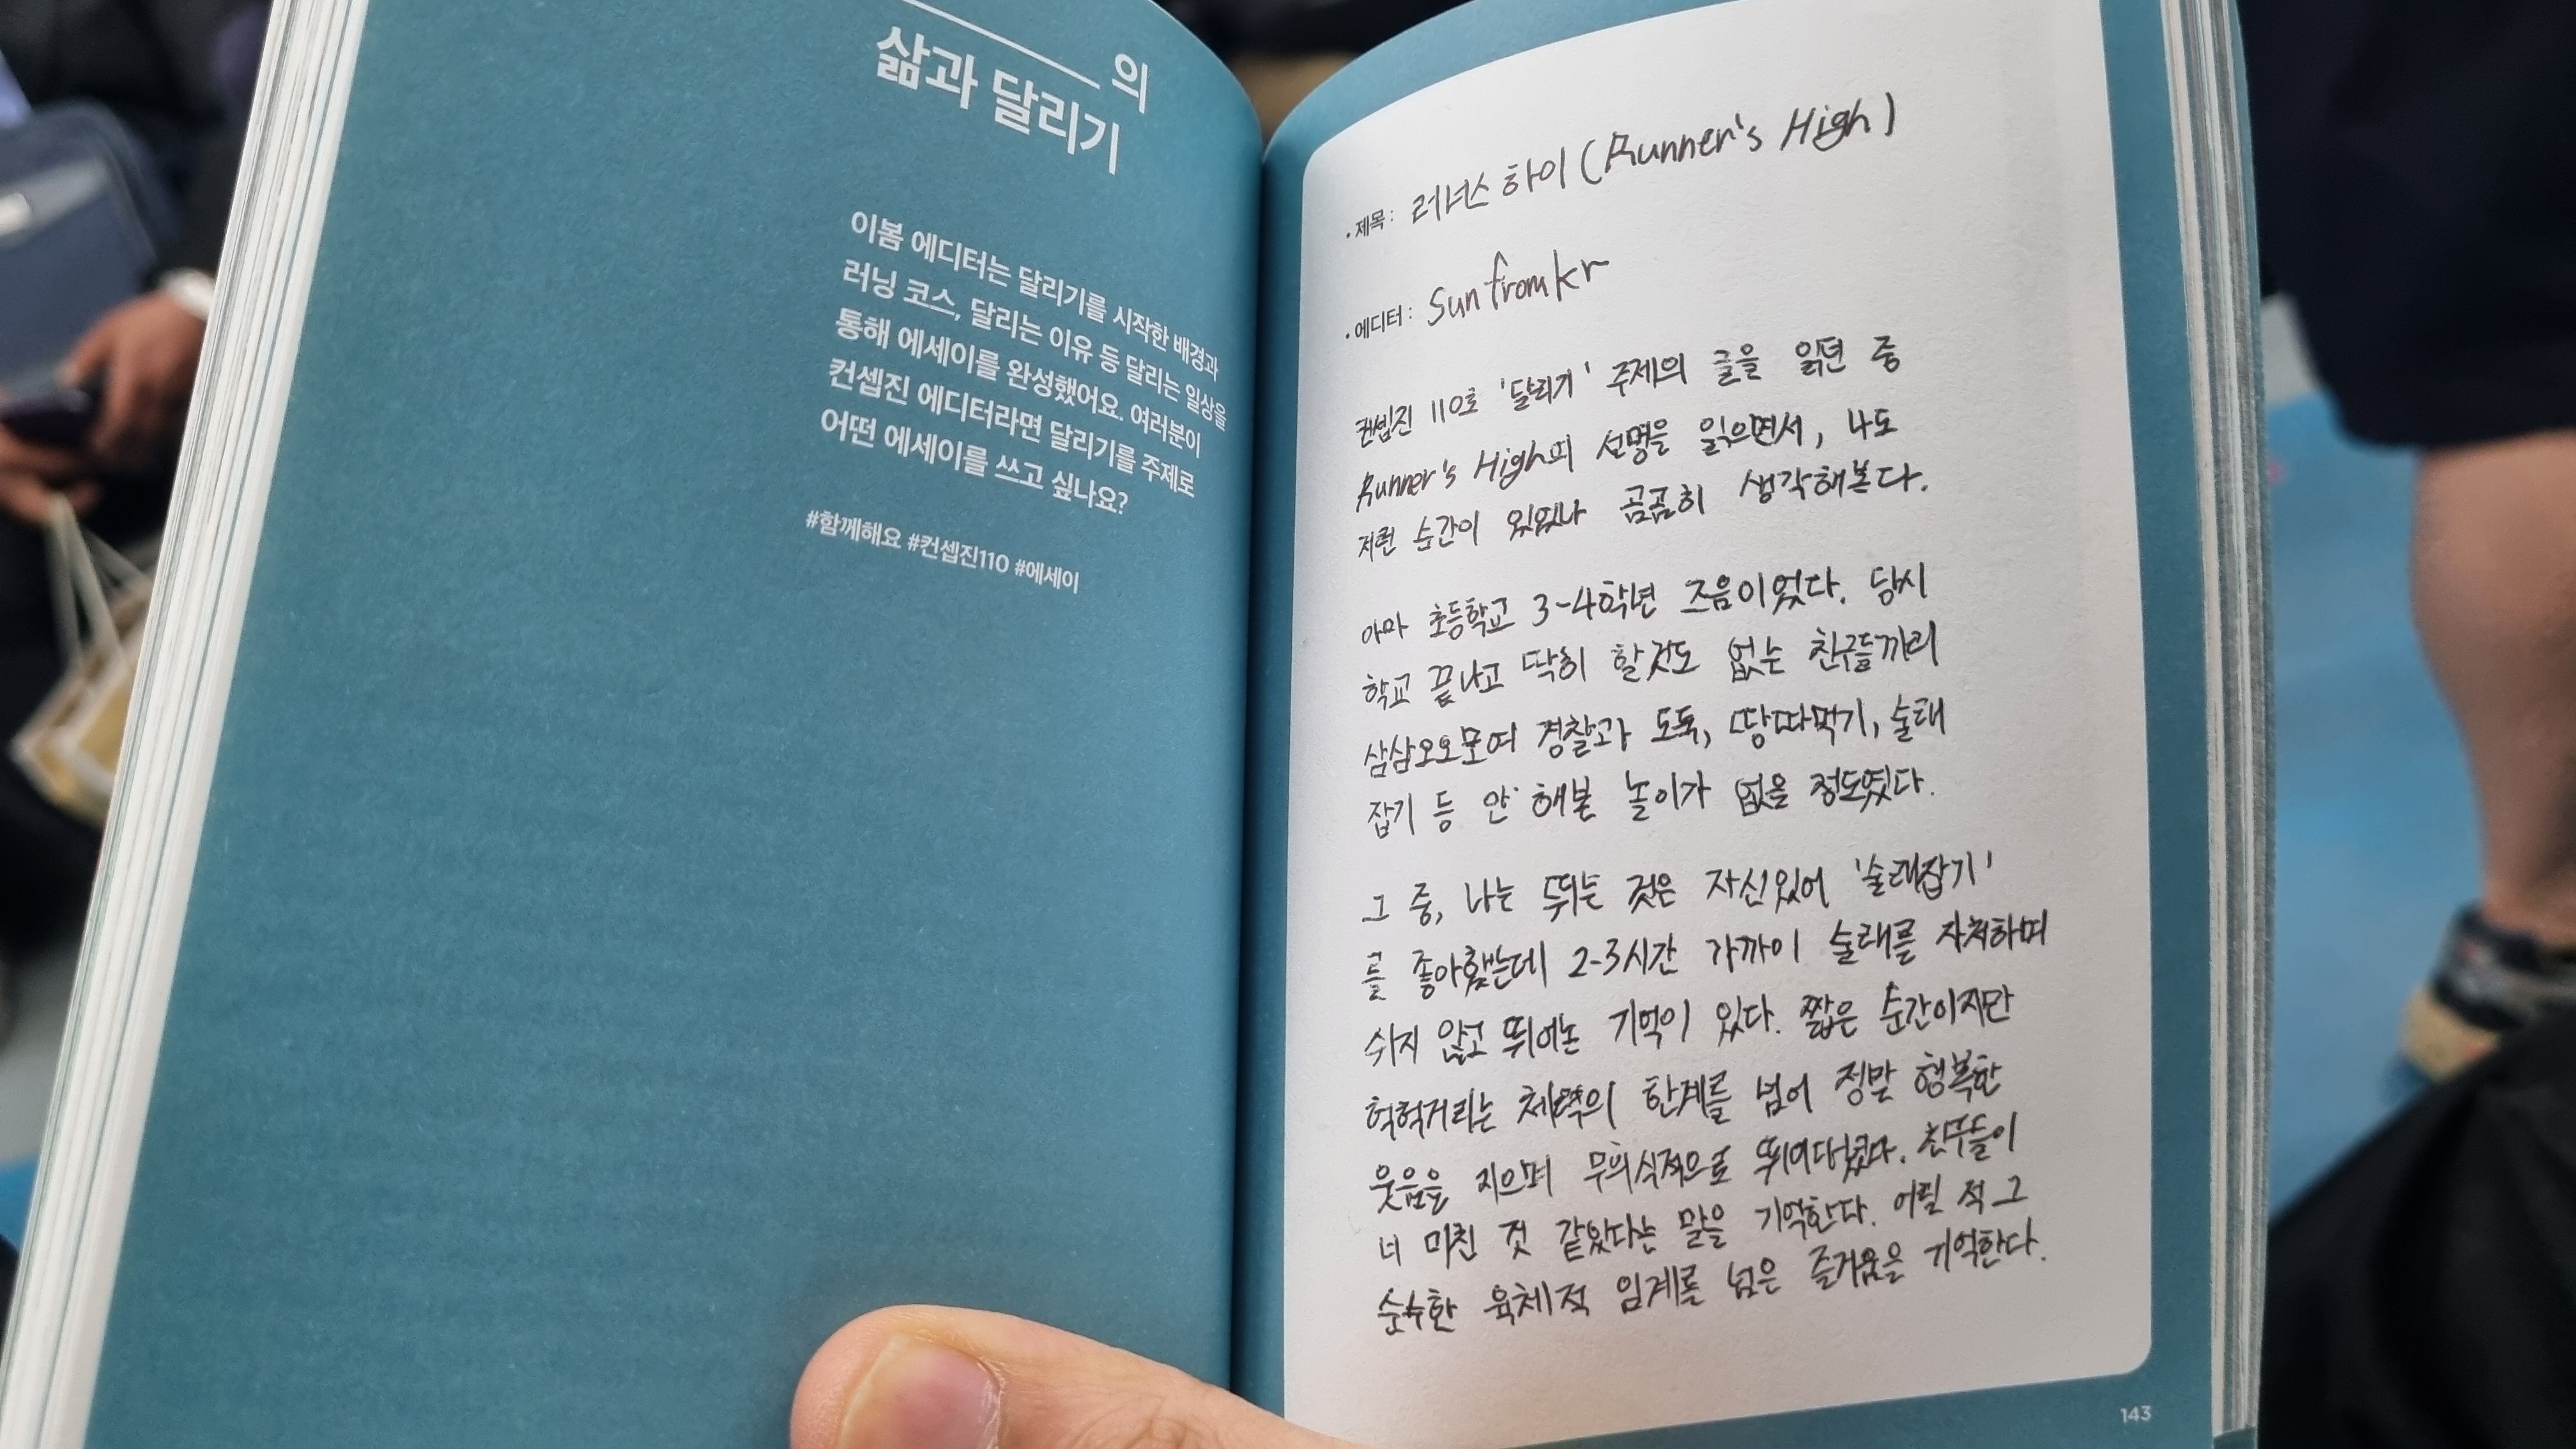 의
삶과 달리기
이봄 에디터는 달리기를 시작한 배경과
러닝 코스, 달리는 이유 등 달리는 일상을
통해 에세이를 완성했어요. 여러분이
컨셉진 에디터라면 달리기를 주제로
어떤 에세이를 쓰고 싶나요?
#함께해요 #컨셉진110 #에세이
• 제목 : 러너스 하이 (Runner's High)
• 에디터 : Sunfromkr
컨셉진 110호 '달리기' 주제의 글을 읽던 중
Runner's High의 설명을 읽으면서, 나도
저런 순간이 있었나 곰곰히 생각해본다.
아마 초등학교 3-4학년 즈음이었다. 당시
학교 끝나고 딱히 할것도 없는 친구들끼리
삼삼오오모여 경찰과 도둑, 땅따먹기, 술래
잡기 등 안 해본 놀이가 없을 정도였다.
그 중, 나는 뛰는 것은 자신있어 '술래잡기'
를 좋아했는데 2-3시간 가까이 술래를 자처하며
쉬지 않고 뛰어논 기억이 있다. 짧은 순간이지만
헉헉거리는 체력의 한계를 넘어 정말 행복한
웃음을 지으며 무의식적으로 뛰어다녔다. 친구들이
너 미친 것 같았다는 말을 기억한다. 어릴 적 그
순수한 육체적 임계를 넘은 즐거움을 기억한다.
143